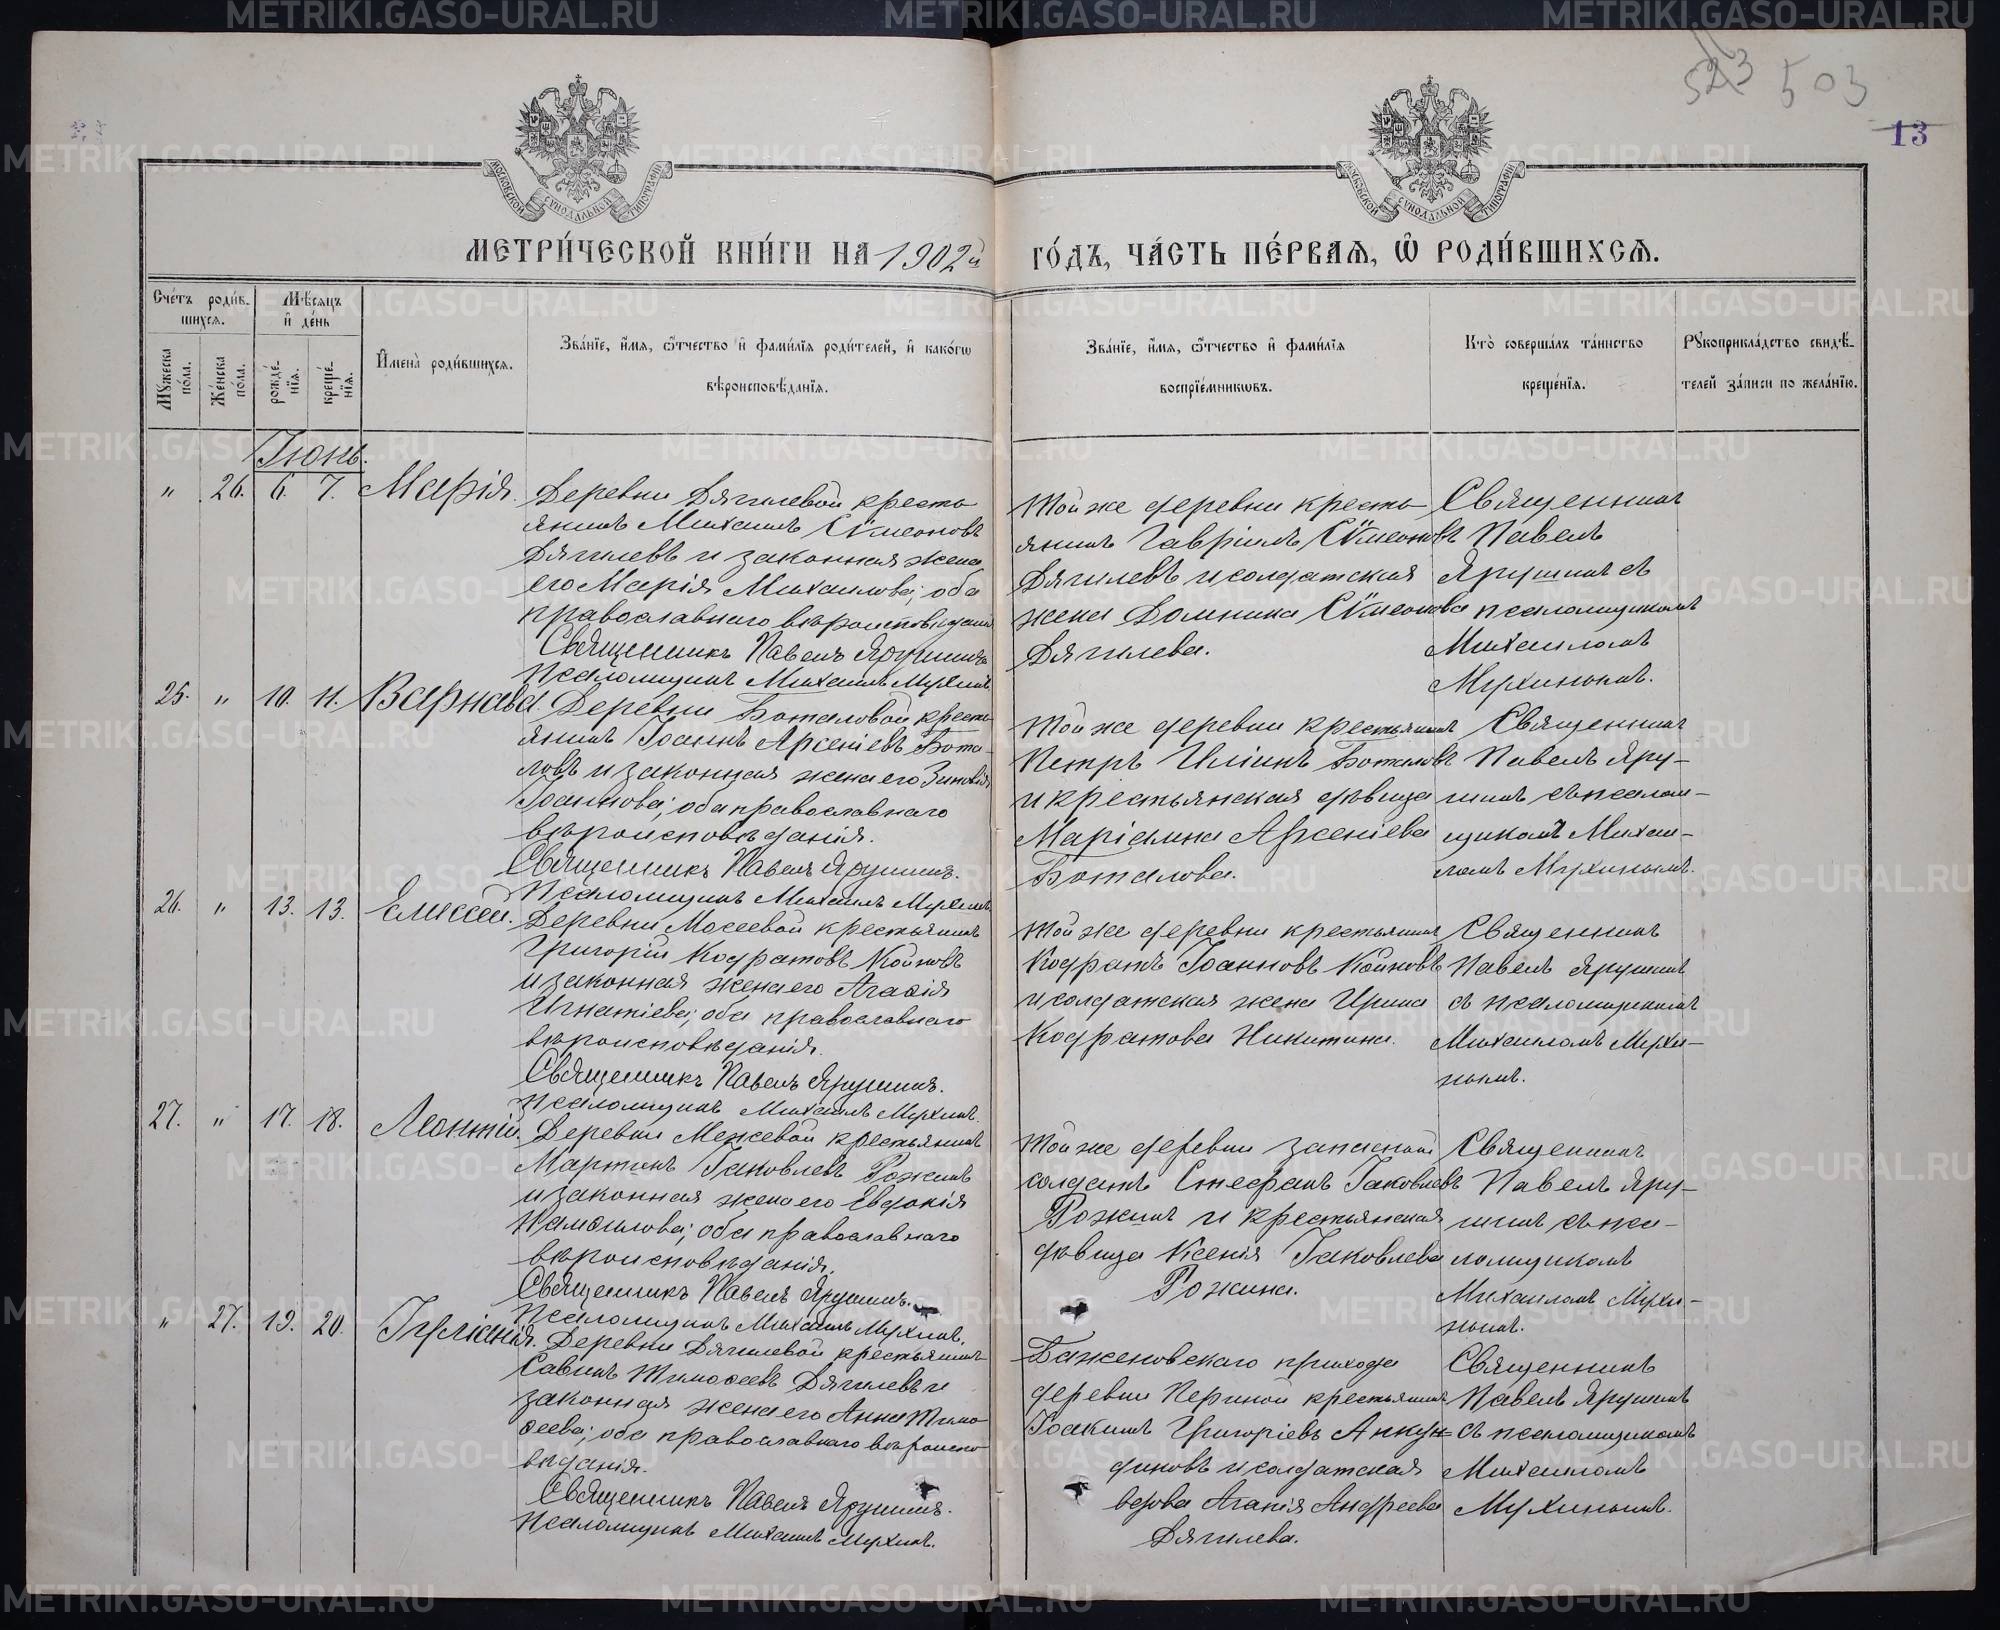 523 503
13
МОСКОВСКОЙ СѴНОДАЛЬНОЙ ТИПОГРАФІИ
МОСКОВСКОЙ СѴНОДАЛЬНОЙ ТИПОГРАФІИ
МЕТРИ́ЧЕСКОЙ КНИ́ГИ НА 1902й
ГО́ДЪ, ЧА́СТЬ ПЕ́РВАЯ, Ѡ РОДИ́ВШИХСЯ.
Сче́тъ роди́в-
шихся.
Мꙋжеска по́ла.
Же́нска по́ла.
Мѣ́сяцъ
и де́нь
рожде́-
нїя.
креще́-
нїя.
Имена̀ роди́вшихся.
Зва́нїе, и́мя, ѻ́тчество и фами́лїя роди́телей, и како́гѡ
вѣроисповѣ́данїя.
Зва́нїе, и́мя, ѻ́тчество и фами́лїя
воспрїе́мникѡвъ.
Кто̀ соверша́лъ та́инство
креще́нїя.
Рꙋкоприкла́дство свидѣ́-
телей за́писи по жела́нїю.
Іюнь.
" 26. 6. 7. Марія.
Деревни Дягилевой кресть
янинъ Михаилъ Сѵмеоновъ
Дягилевъ и законная жена
его Марія Михаилова; оба
православнаго вѣроисповѣданія
Священникъ Павелъ Ярушинъ
Псаломщикъ Михаилъ Мухинъ.
Той же деревни кресть
янинъ Гавріилъ Сѵмеоновъ
Дягилевъ и солдатская
жена Домника Сѵмеонова
Дягилева.
Священникъ
Павелъ
Ярушинъ съ
псаломщикомъ
Михаиломъ
Мухинымъ.
25. " 10. 11. Варнава.
Деревни Боталовой кресть
янинъ Іоаннъ Арсеніевъ Бота-
ловъ и законная жена его Зиновія
Іоаннова; оба православнаго
вѣроисповѣданія.
Священникъ Павелъ Ярушинъ.
Псаломщикъ Михаилъ Мухинъ.
Той же деревни крестьянинъ
Петръ Иліинъ Боталовъ
и крестьянская дѣвица
Маріамна Арсеніева
Боталова.
Священникъ
Павелъ Яру-
шинъ съ псалом-
щикомъ Михаи-
ломъ Мухинымъ.
26. " 13. 13. Елиссей.
Деревни Мосеевой крестьянинъ
Григорій Кодратовъ Койновъ
и законная жена его Агаѳія
Игнатіева; оба православнаго
вѣроисповѣданія.
Священникъ Павелъ Ярушинъ.
Псаломщикъ Михаилъ Мухинъ.
Той же деревни крестьянинъ
Кодратъ Іоанновъ Койновъ
и солдатская жена Ирина
Кодратова Никитина.
Священникъ
Павелъ Ярушинъ
съ псаломщикомъ
Михаиломъ Мухи-
нымъ.
27. " 17. 18. Леонтій.
Деревни Межевой крестьянинъ
Мартинъ Іаковлевъ Рожинъ
и законная жена его Евдокія
Самоилова; оба православнаго
вѣроисповѣданія.
Священникъ Павелъ Ярушинъ.
Псаломщикъ Михаилъ Мухинъ.
Той же деревни запасной
солдатъ Стефанъ Іаковлевъ
Рожинъ и крестьянская
дѣвица Ксенія Іаковлева
Рожина.
Священникъ
Павелъ Яру-
шинъ съ пса-
ломщикомъ
Михаиломъ Мухи-
нымъ.
" 27. 19. 20. Іуліанія.
Деревни Дягилевой крестьянинъ
Савинъ Тимоѳеевъ Дягилевъ и
законная жена его Анна Тимо
ѳеева; оба православнаго вѣроиспо
вѣданія.
Священникъ Павелъ Ярушинъ.
Псаломщикъ Михаилъ Мухинъ.
Баженовскаго прихода
деревни крестьянинъ
Іоакимъ Григоріевъ Анкун-
диновъ и солдатская
вдова Агапія Андреева
Дягилева.
Священникъ
Павелъ Ярушинъ
съ псаломщикомъ
Михаиломъ
Мухинымъ.
METRIKI.GASO-URAL.RU